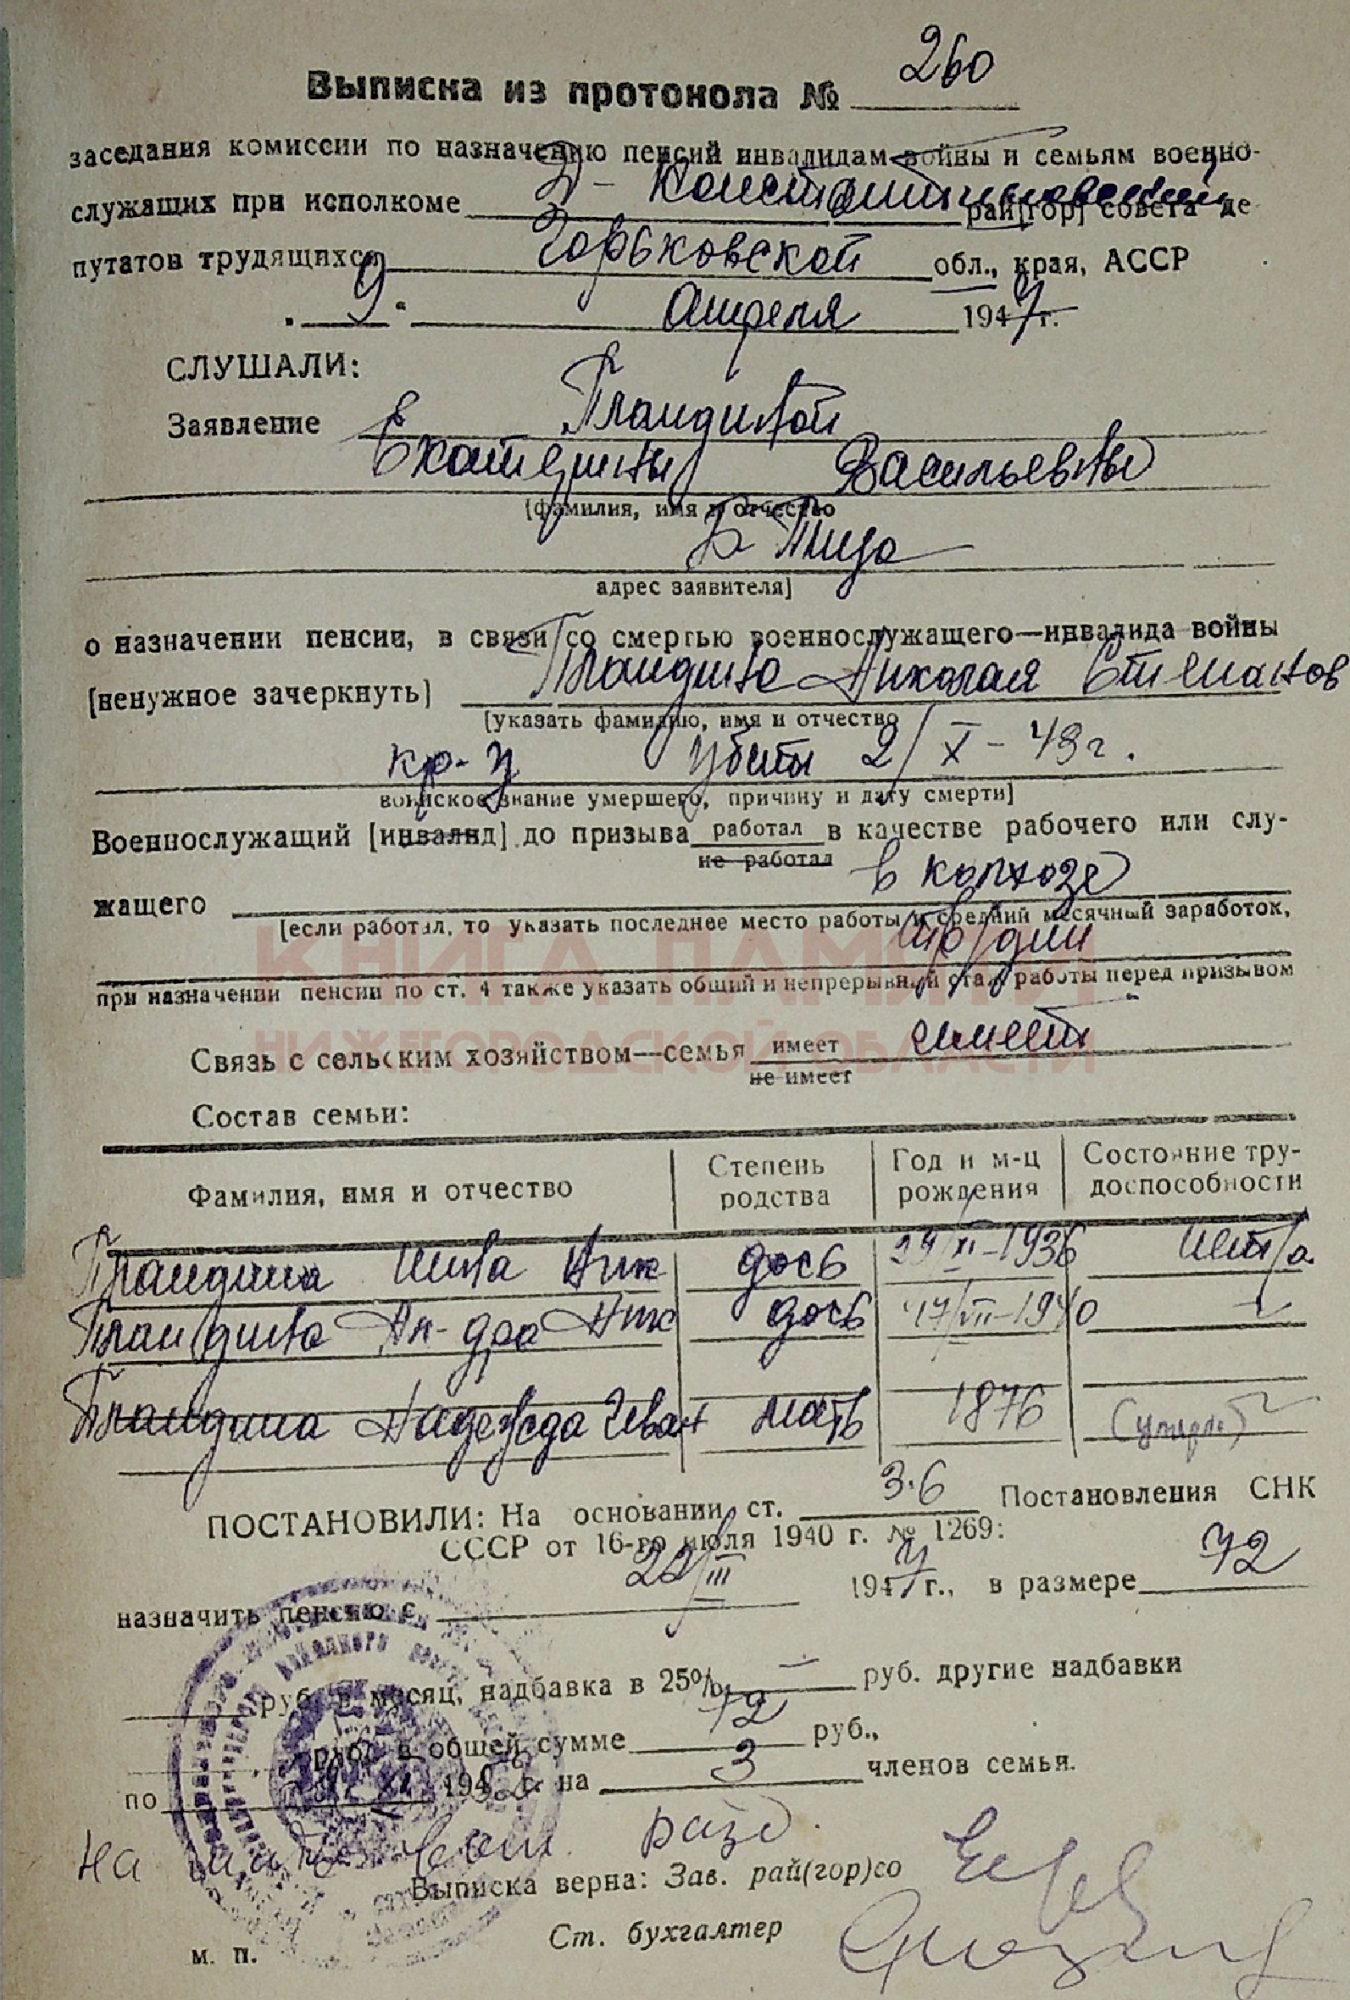 Выписка из протокола № 260
заседания комиссии по назначению пенсий инвалидам войны и семьям военно-
служащих при исполкоме Д-Константиновский рай[гор] совета де
путатов трудящихся Горьковской обл., края, АССР
"9" апреля 1947 г.
СЛУШАЛИ:
Заявление Пландиной
Екатерины Васильевны
[фамилия, имя и отчество
Б Пица
адрес заявителя]
о назначении пенсии, в связи со смертью военнослужащего—инвалида войны
[ненужное зачеркнуть] Пландина Николая Степанов
[указать фамилию, имя и отчество
кр-ц убит 2/X-43 г.
воинское звание умершего, причину и дату смерти]
Военнослужащий [инвалид] до призыва работал в качестве рабочего или слу-
не работал
жащего в колхозе
[если работал, то указать последнее место работы и средний месячный заработок,
тр/дни
при назначении пенсии по ст. 4 также указать общий и непрерывный стаж работы перед призывом
КНИГА ПАМЯТИ
НИЖЕГОРОДСКОЙ ОБЛАСТИ
Связь с сельским хозяйством—семья имеет имеет
не имеет
Состав семьи:
Фамилия, имя и отчество Степень родства Год и м-ц рождения Состояние тру-доспособности
Пландина Нина Ник дочь 29/XI-1936 нет/р
Пландина Ал-дра Ник дочь 17/VII-1940
Пландина Надежда Иван мать 1876
ПОСТАНОВИЛИ: На основании ст. 3.6 Постановления СНК
СССР от 16-го июля 1940 г. № 1269:
назначить пенсию с 22/III 1947 г., в размере 72
руб. в месяц, надбавка в 25% — руб. другие надбавки
руб. в общей сумме 72 руб.,
по 194 г. на 3 членов семья.
на
Выписка верна: Зав. рай(гор)со
Ст. бухгалтер
м. п.